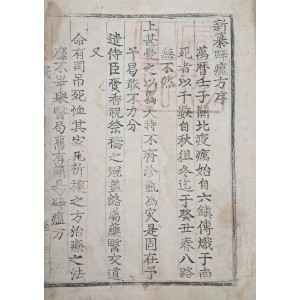 新纂辟瘟方序
萬曆壬子關北疫癘始自六鎮傳熾于南
死者以千數自秋徂冬迄于癸丑春八路
無不然
上甚憂之以爲天時不齊沴氣爲灾是固在予
予曷敢不力分
遣侍臣賫香祝祭禱之冠盖絡屬藥醫交道
又
命有司吊死恤其家凡祈禳之方治療之法
靡不畢擧醫局舊有簡易辟瘟方